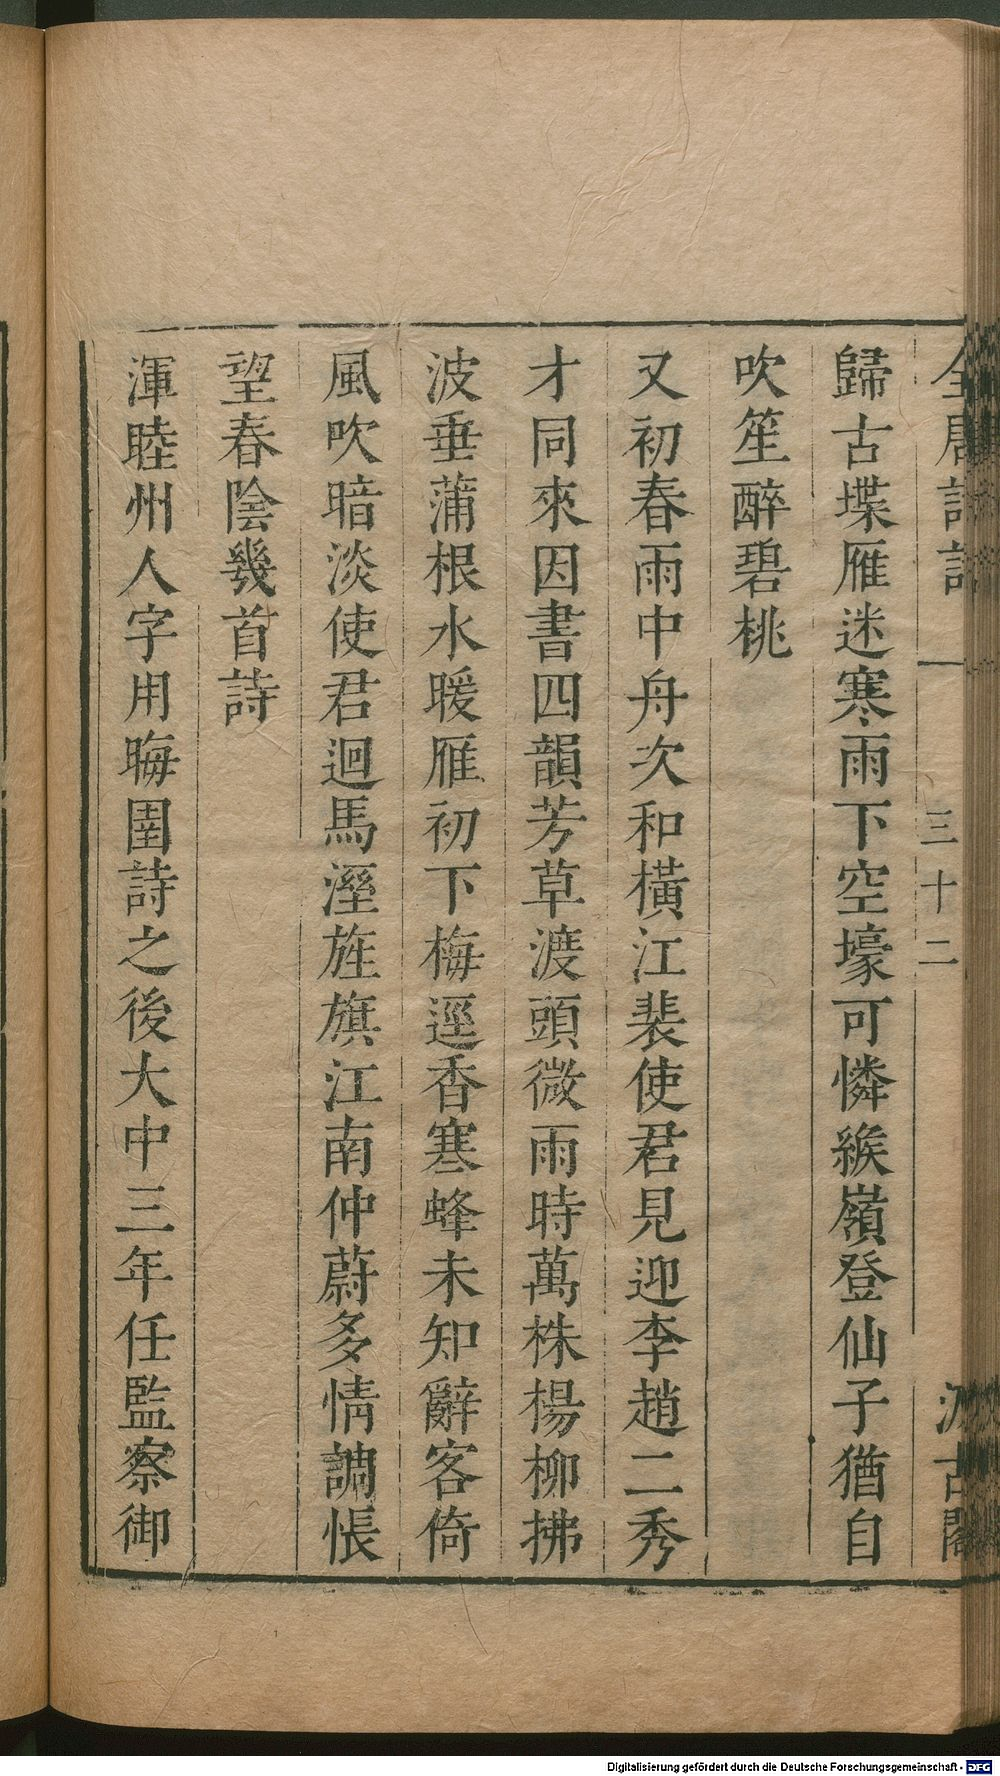 全唐詩話 一 三十二 汲古閣
歸古堞雁迷寒雨下空壕可憐緱嶺登仙子猶自
吹笙醉碧桃
又初春雨中舟次和橫江裴使君見迎李趙二秀
才同來因書四韻芳草渡頭微雨時萬株楊柳拂
波垂蒲根水暖雁初下梅逕香寒蜂未知辭客倚
風吹暗淡使君迴馬溼旌旗江南仲蔚多情調悵
望春陰幾首詩
渾睦州人字用晦圉詩之後大中三年任監察御
Digitalisierung gefördert durch die Deutsche Forschungsgemeinschaft - DFG